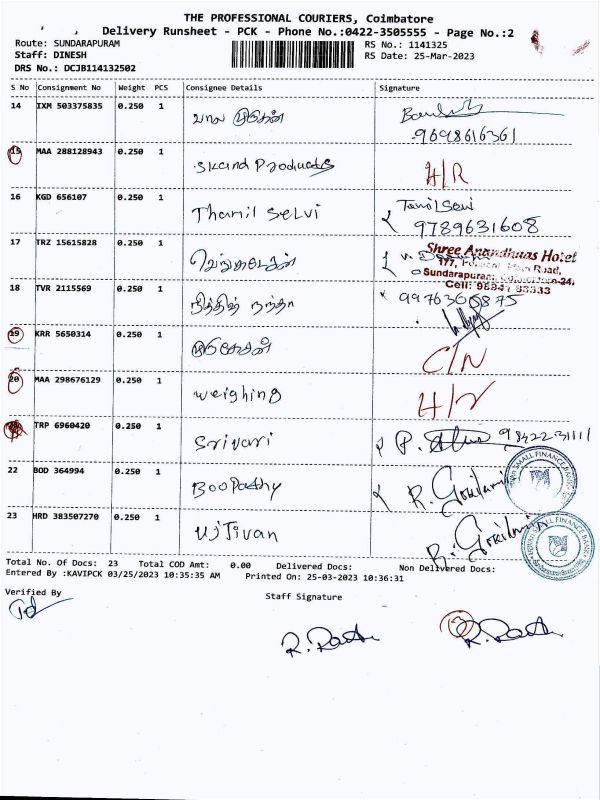 THE PROFESSIONAL COURIERS, Coimbatore
Delivery Runsheet - PCK - Phone No.:0422-3505555 - Page No.:2
Route: SUNDARAPURAM
RS No.: 1141325
Staff: DINESH
RS Date: 25-Mar-2023
DRS No.: DCJB114132502
S No Consignment No Weight PCS Consignee Details Signature
14 IXM 503375835 0.250 1 பால முருகன்
9698616361
15 MAA 288128943 0.250 1 Skand Products H/R
16 KGD 656107 0.250 1 Thamil Selvi Tamil Selvi
9789631608
17 TRZ 15615828 0.250 1 வெங்கடேசன்
Shree Anandhaas Hotel
Sundarapuram,
18 TVR 2115569 0.250 1 நித்திஷ் நந்தா
19 KRR 5650314 0.250 1 முருகேசன் C/N
20 MAA 298676129 0.250 1 weighing H/R
TRP 6960420 0.250 1 Srivari
22 BOD 364994 0.250 1 Boopathy R. Gokilavani
23 HRD 383507270 0.250 1 Ujjivan R. Gokilavani
SMALL FINANCE BANK
Total No. Of Docs: 23 Total COD Amt: 0.00 Delivered Docs: Non Delivered Docs:
Entered By :KAVIPCK 03/25/2023 10:35:35 AM Printed On: 25-03-2023 10:36:31
Verified By
Staff Signature